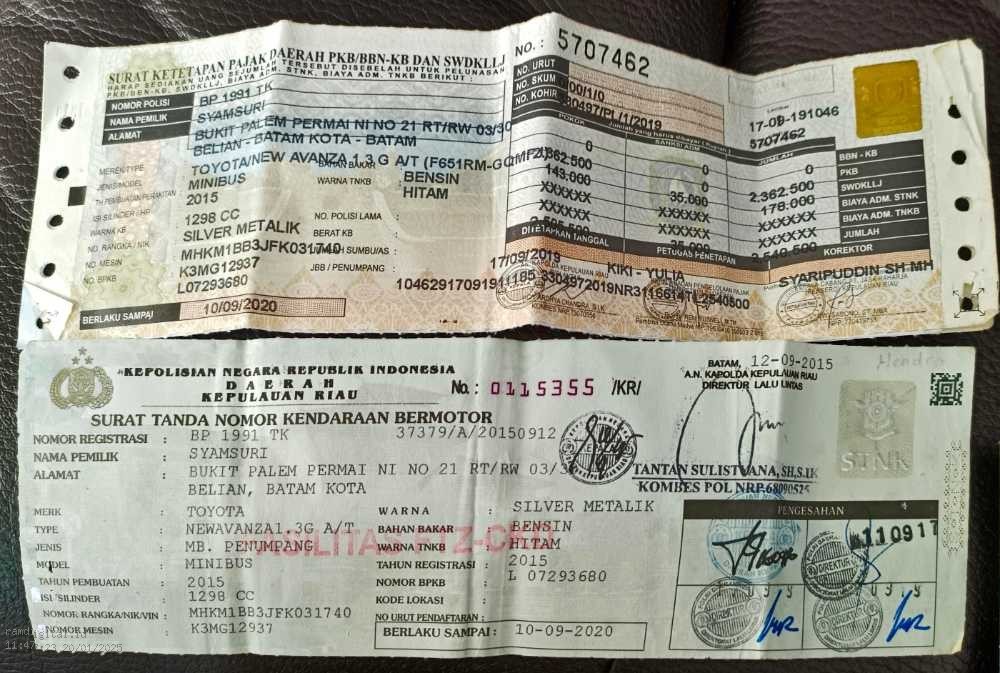 SURAT KETETAPAN PAJAK DAERAH PKB/BBN-KB DAN SWDKLLJ
HARAP SEDIAKAN UANG SEJUMLAH TERSEBUT DISEBELAH UNTUK PELUNASAN
PKB/BBN-KB, SWDKLLJ, BIAYA ADM. STNK, BIAYA ADM. TNKB BERIKUT :
NO. : 5707462
NO. URUT
NO. SKUM
NO. KOHIR
17-09-191046
5707462
NOMOR POLISI BP 1991 TK
NAMA PEMILIK SYAMSURI
ALAMAT BUKIT PALEM PERMAI NI NO 21 RT/RW 03/30
BELIAN - BATAM KOTA - BATAM
MEREK/TYPE TOYOTA/NEW AVANZA 1.3 G A/T
JENIS/MODEL MINIBUS
BENSIN
WARNA TNKB : HITAM
TH PEMBUATAN/PERAKITAN 2015
ISI SILINDER / HP 1298 CC
NO. POLISI LAMA :
WARNA KB SILVER METALIK
BERAT KB :
NO. RANGKA / NIK MHKM1BB3JFK031740
NO. MESIN K3MG12937
JBB / PENUMPANG :
NO. BPKB L07293680
BERLAKU SAMPAI 10/09/2020
POKOK SANKSI ADM JUMLAH
0 0 0 BBN - KB
2.362.500 0 2.362.500 PKB
143.000 35.000 178.000 SWDKLLJ
XXXXXX XXXXXX XXXXXX BIAYA ADM. STNK
XXXXXX XXXXXX XXXXXX BIAYA ADM. TNKB
35.000 2.540.500 JUMLAH
DITETAPKAN TANGGAL PETUGAS PENETAPAN KOREKTOR
17/09/2019 KIKI - YULIA SYARIPUDDIN SH MH
KEPOLISIAN NEGARA REPUBLIK INDONESIA
DAERAH
KEPULAUAN RIAU
No. : 0115355 /KR/
SURAT TANDA NOMOR KENDARAAN BERMOTOR
BATAM, 12-09-2015
A.N. KAPOLDA KEPULAUAN RIAU
DIREKTUR LALU LINTAS
Hendra
STNK
TANTAN SULISTYANA, SH, S.IK
KOMBES POL NRP. 68090525
NOMOR REGISTRASI : BP 1991 TK 37379/A/20150912
NAMA PEMILIK : SYAMSURI
ALAMAT : BUKIT PALEM PERMAI NI NO 21 RT/RW 03/3
BELIAN, BATAM KOTA
MERK : TOYOTA
TYPE : NEWAVANZA1.3G A/T
JENIS : MB. PENUMPANG
MODEL : MINIBUS
TAHUN PEMBUATAN : 2015
ISI SILINDER : 1298 CC
NOMOR RANGKA/NIK/VIN : MHKM1BB3JFK031740
NOMOR MESIN : K3MG12937
WARNA : SILVER METALIK
BAHAN BAKAR : BENSIN
WARNA TNKB : HITAM
TAHUN REGISTRASI : 2015
NOMOR BPKB : L 07293680
KODE LOKASI :
NO URUT PENDAFTARAN :
BERLAKU SAMPAI : 10-09-2020
PENGESAHAN
110917
DIREKTUR
DIREKTUR
DIREKTUR
ramdigital.id
20/01/2025